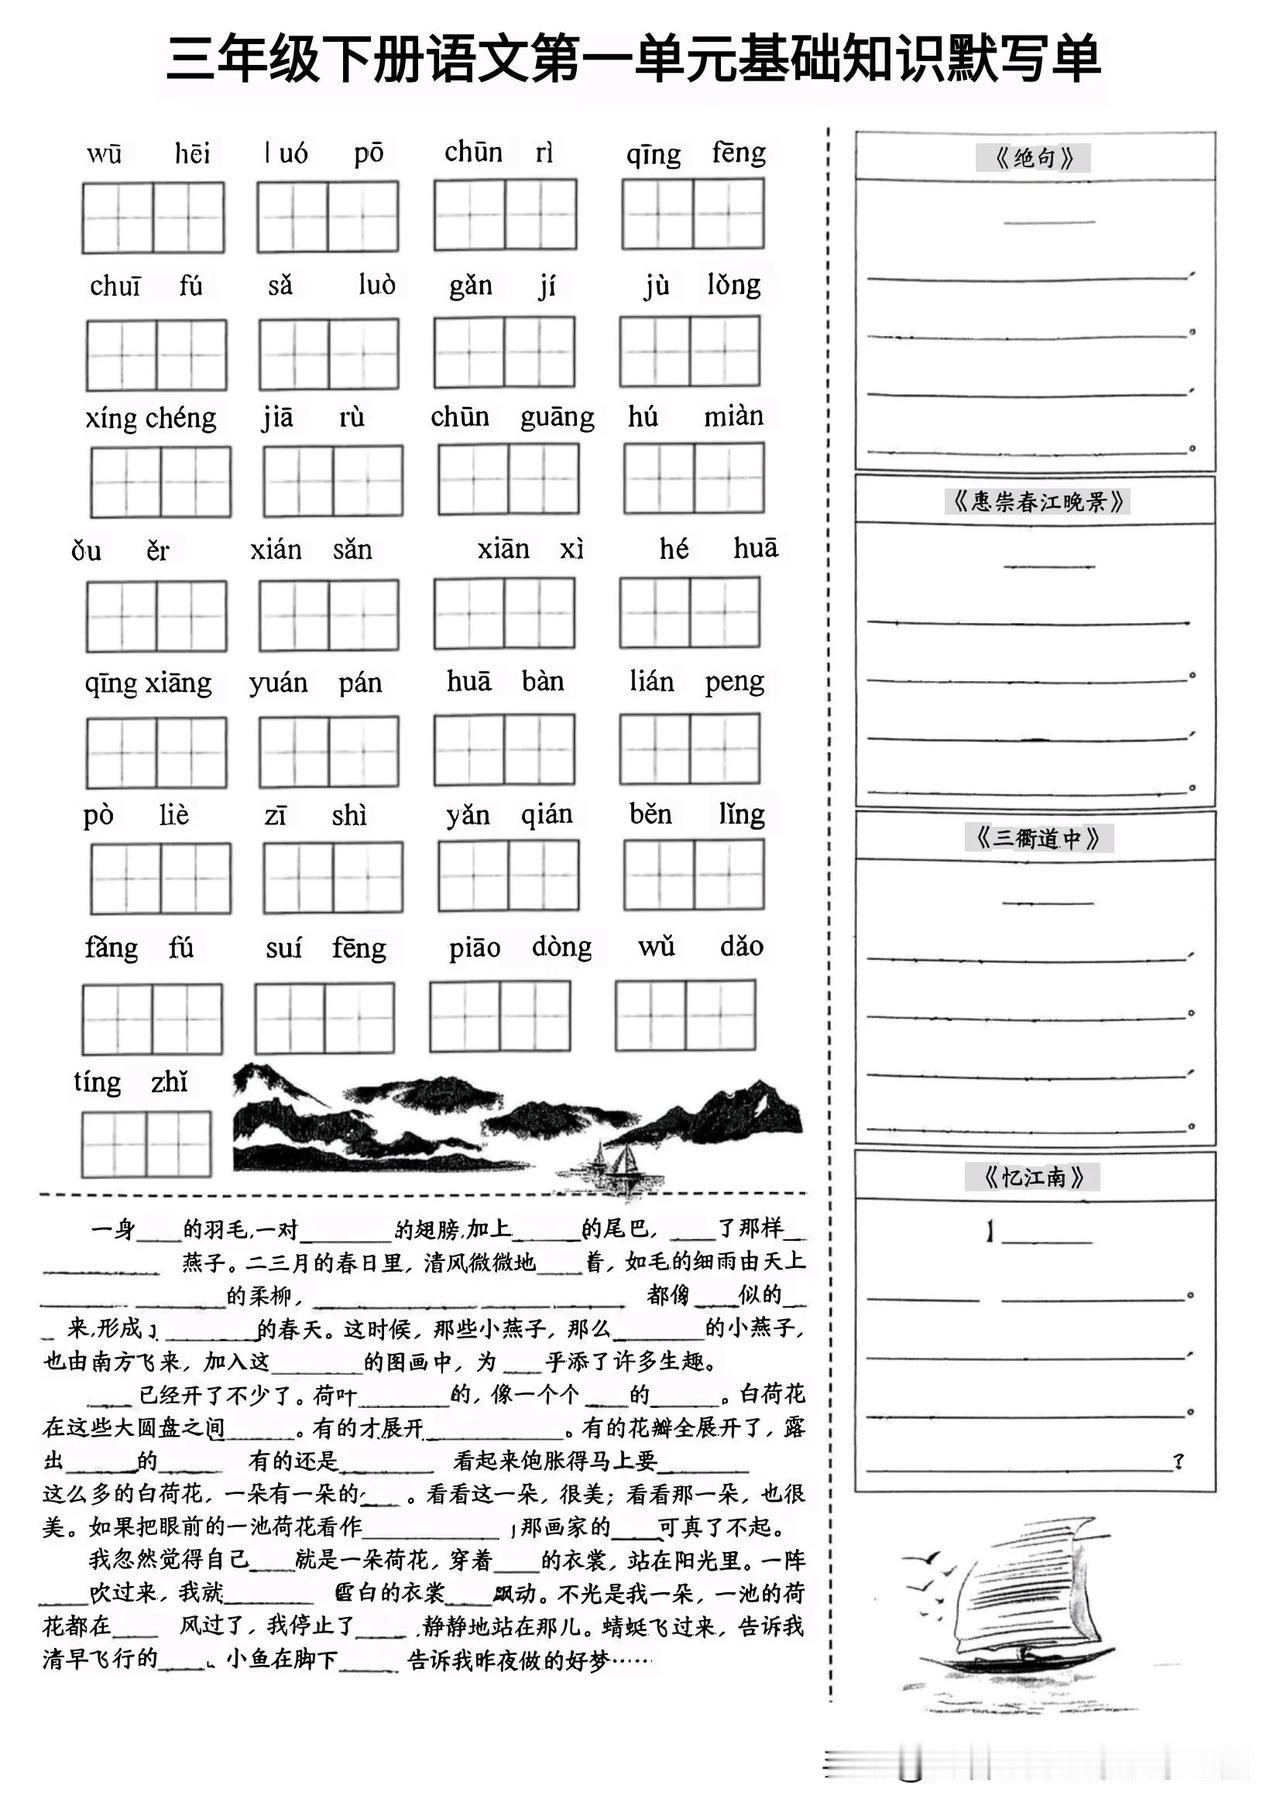 三年级下册语文第一单元基础知识默写单
wū hēi luó pō chūn rì qīng fēng
chuī fú sǎ luò gǎn jí jù lǒng
xíng chéng jiā rù chūn guāng hú miàn
ǒu ěr xián sǎn xiān xì hé huā
qīng xiāng yuán pán huā bàn lián peng
pò liè zī shì yǎn qián běn lǐng
fǎng fú suí fēng piāo dòng wǔ dǎo
tíng zhǐ
一身____的羽毛,一对________的翅膀,加上______的尾巴，____了那样__
__________燕子。二三月的春日里，清风微微地____着，如毛的细雨由天上
______ ________的柔柳，______________ ____ ______都像____似的__
_来,形成了________的春天。这时候，那些小燕子，那么________的小燕子，
也由南方飞来，加入这________的图画中，为____乎添了许多生趣。
____已经开了不少了。荷叶________的，像一个个____的______。白荷花
在这些大圆盘之间______。有的才展开____________。有的花瓣全展开了，露
出______的______有的还是________看起来饱胀得马上要________
这么多的白荷花，一朵有一朵的____。看看这一朵，很美；看看那一朵，也很
美。如果把眼前的一池荷花看作____________,那画家的____可真了不起。
我忽然觉得自己____就是一朵荷花，穿着____的衣裳，站在阳光里。一阵
____吹过来，我就________雪白的衣裳____飘动。不光是我一朵，一池的荷
花都在____风过了，我停止了____,静静地站在那儿。蜻蜓飞过来，告诉我
清早飞行的____。小鱼在脚下____告诉我昨夜做的好梦……
《绝句》
《惠崇春江晚景》
《三衢道中》
《忆江南》